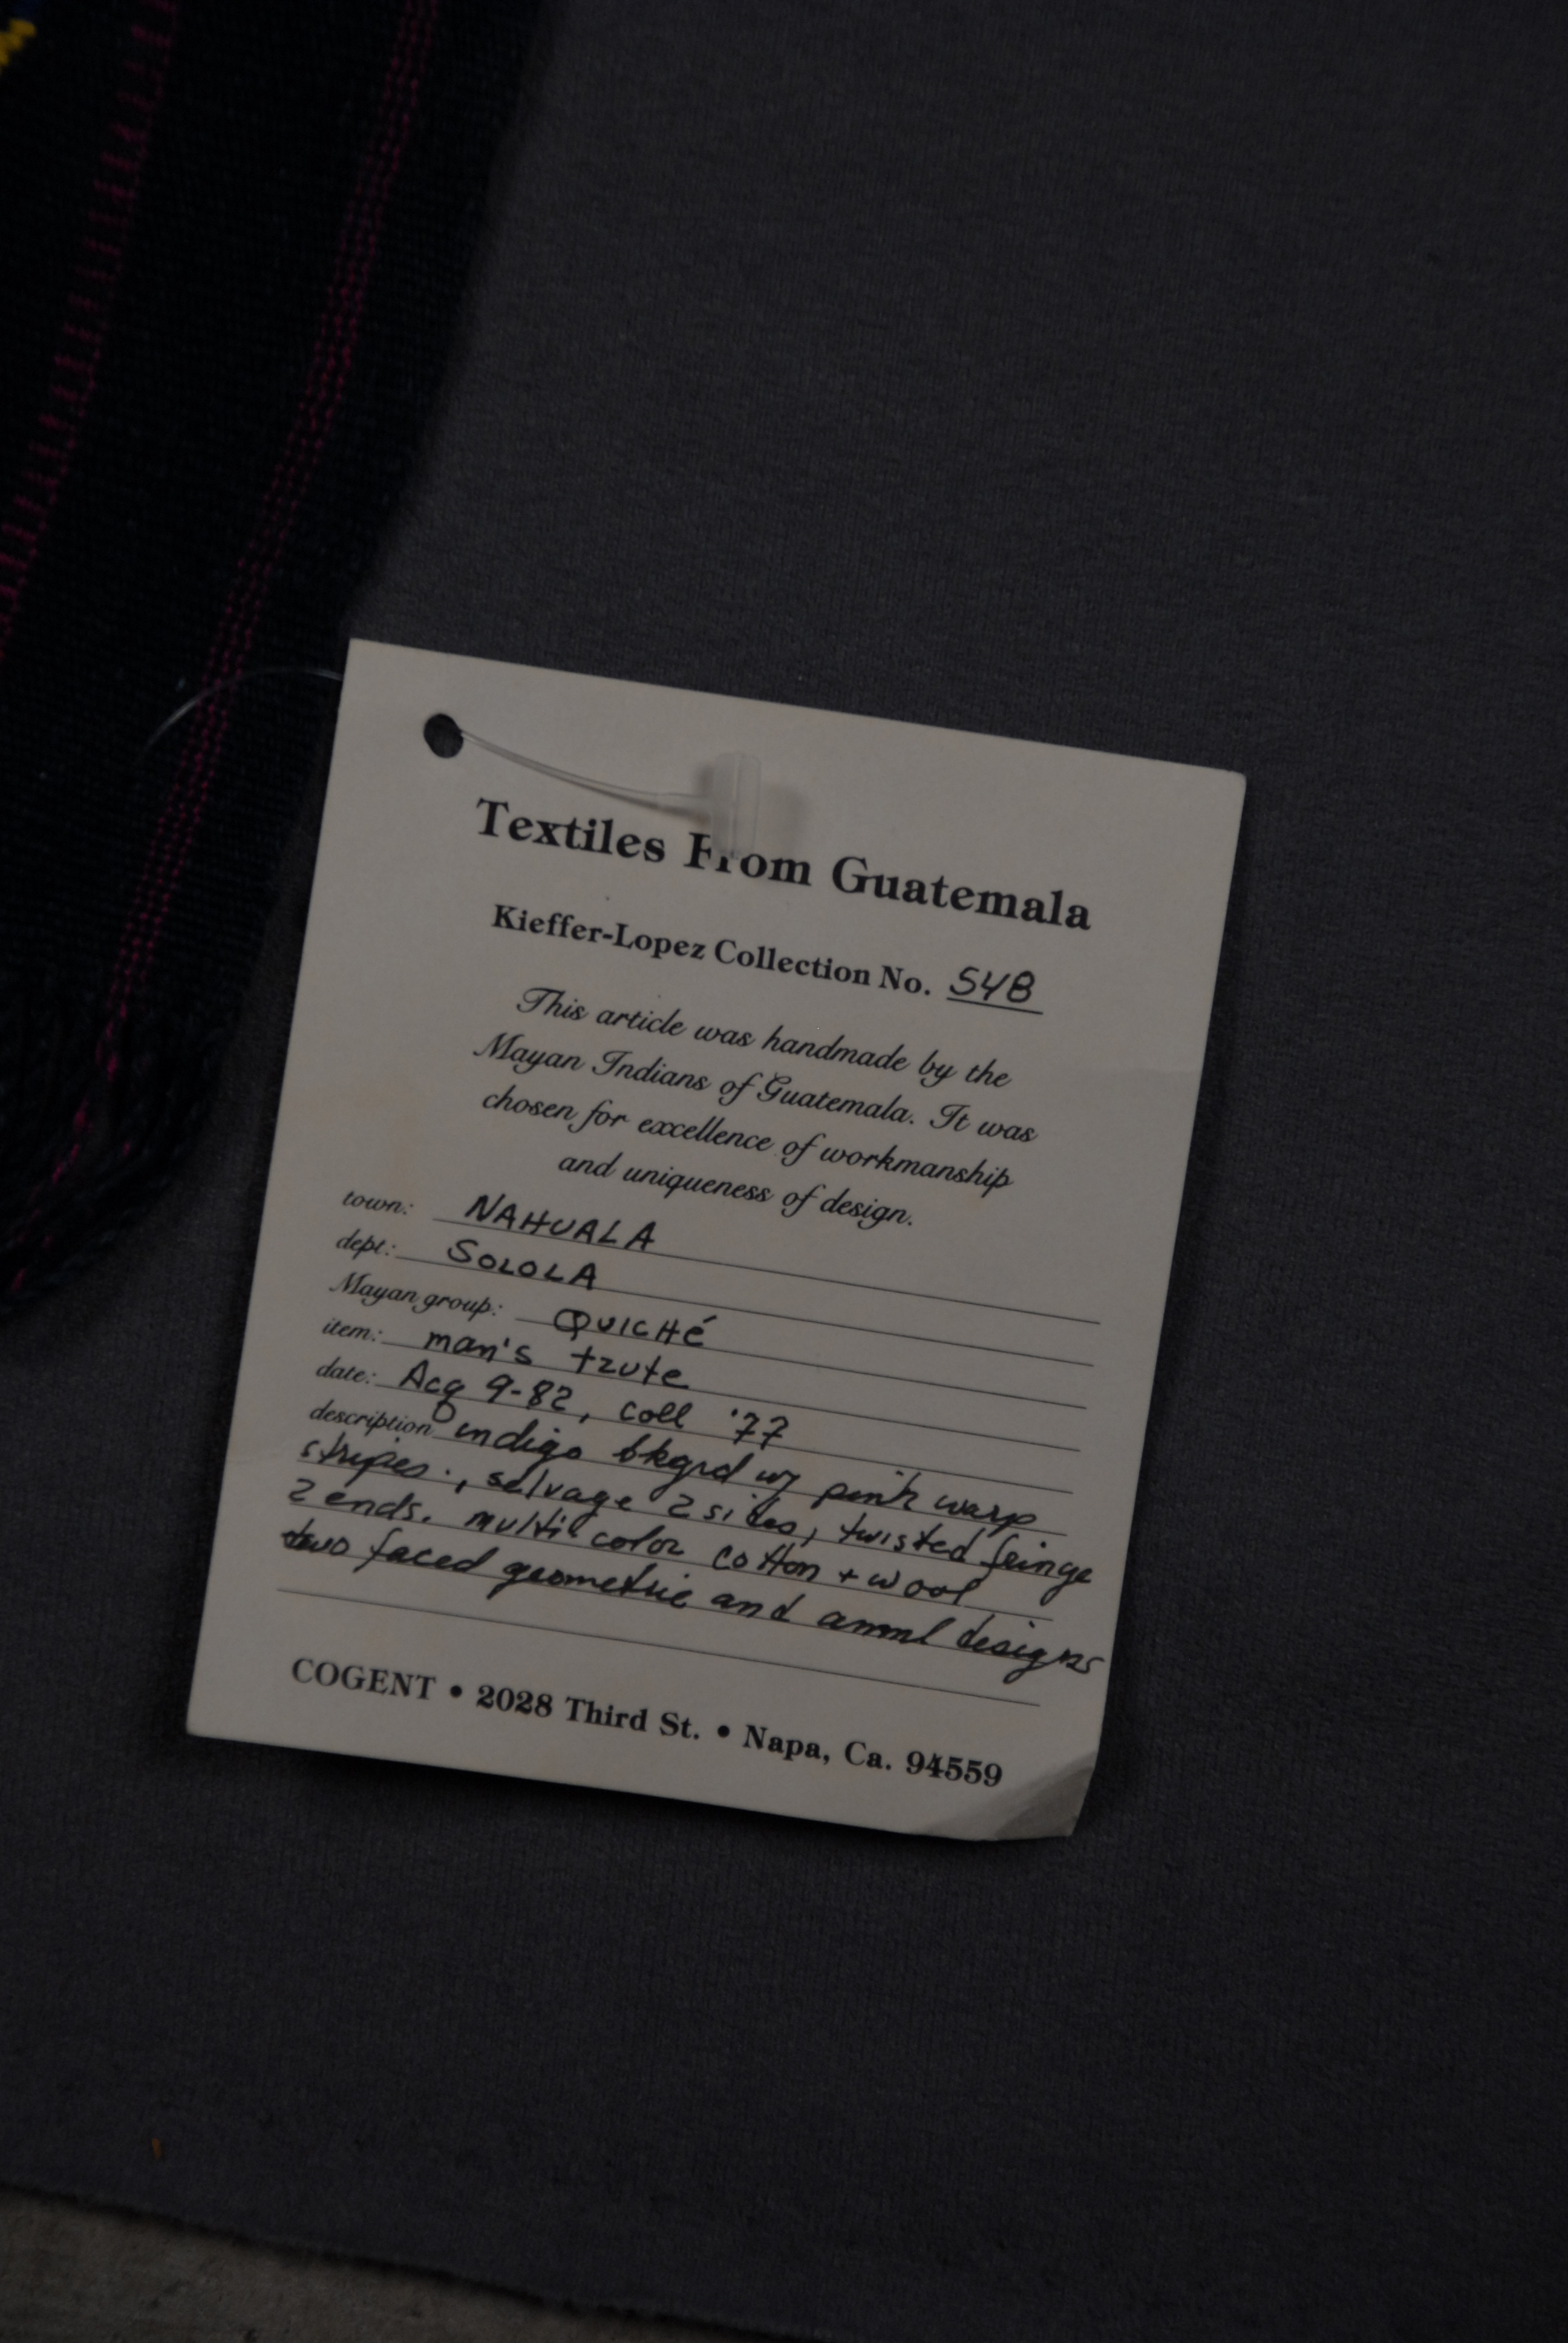 Textiles From Guatemala
Kieffer-Lopez Collection No. 548
This article was handmade by the
Mayan Indians of Guatemala. It was
chosen for excellence of workmanship
and uniqueness of design.
town: NAHUALA
dept: SOLOLA
Mayan group: QUICHÉ
item: man's tzute
date: Acq 9-82, coll '77
description indigo bkgrd w/ pink warp
stripes., selvage 2 sides, twisted fringe
2 ends. multi color cotton + wool
two faced geometric and animl designs
COGENT • 2028 Third St. • Napa, Ca. 94559